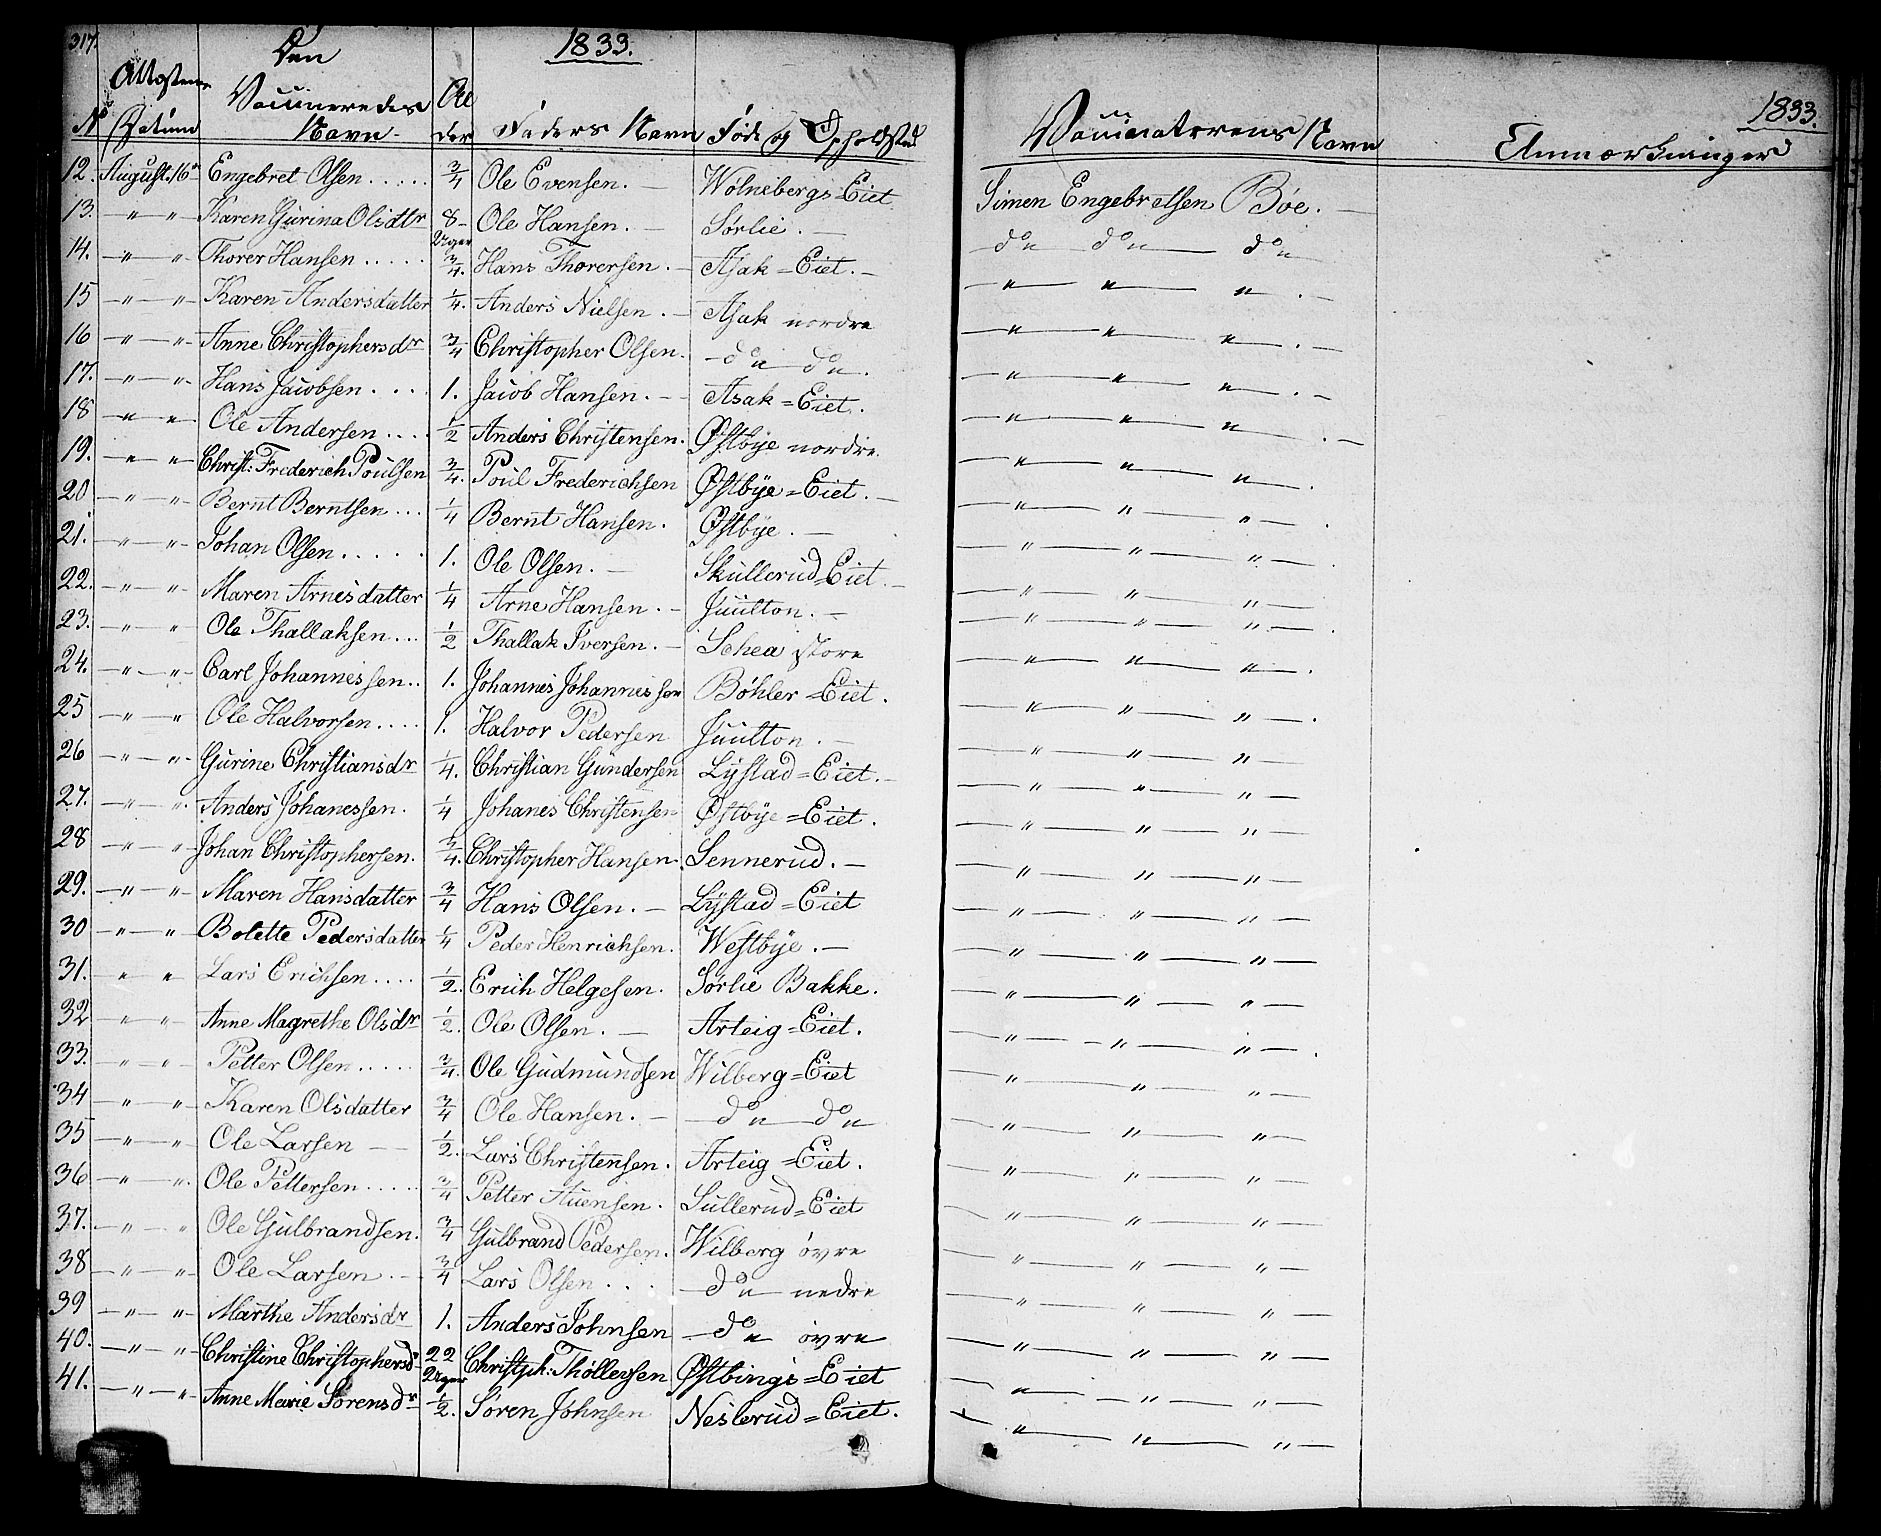 317.
1833.
Attestens Datum
Den Vaccineredes Navn
Alder
Faders Navn
Føde og Opholdsted
Vaccinatorens Navn
Anmærkninger
1833.
No
12. August. 16de Engebret Olsen..... 3/4 Ole Evensen. — Wølnebergs=Eiet Simen Engebretsen Böe. —
13. — " — " Karen Gurina Olsdtr 8 Uger Ole Hansen. — Sørlie. — — do — do — do —
14. — " — " Thorer Hansen..... 3/4. Hans Thorersen. — Asak=Eiet. — — " — " — " . —
15 — " — " Karen Andersdatter 1/4. Anders Nielsen. — Asak nordre — " — " — " . —
16 — " — " Anne Christophersdr 3/4 Christopher Olsen. — do do. — " — " — " . —
17. — " — " Hans Jacobsen.... 1. Jacob Hansen. — Asak=Eiet. — " — " — " . —
18 — " — " Ole Andersen.... 1/2 Anders Christensen. Østbÿe nordre. — " — " — " .
19. — " — " Christ: Friderich Poulsen 3/4. Poul Frederichsen Østbÿe=Eiet. — — " — " — " — .
20 — " — " Bernt Berntsen... 1/4 Bernt Hansen. Østbÿe. — — " — " — " — .
21. — " — " Johan Olsen..... 1. Ole Olsen. — Skullerud=Eiet. — — " — " — " —
22. — " — " Maren Arnesdatter 1/4 Arne Hansen. — Juulton. — — " — " — " — .
23. — " — " Ole Thallaksen... 1/2 Thallak Iversen. — Schea store — " — " — " — .
24. — " — " Carl Johannessen.. 1. Johannes Johannessen Böhler=Eiet. — " — " — " — .
25 — " — " Ole Halvorsen.... 1. Halvor Pedersen Juulton. — — " — " — " —
26 — " — " Gurine Christiansdr 1/4. Christian Gundersen Lÿstad=Eiet. — — " — " — " —
27. — " — " Anders Johanessen. 1/4 Johanes Christensen Østbÿe=Eiet. — " — " — " —
28 — " — " Johan Christophersen. 3/4. Christopher Hansen. Sennerud. — — " — " — " —
29. — " — " Maren Hansdatter 3/4 Hans Olsen. — Lÿstad=Eiet — " — " — " —
30 — " — " Bolette Pedersdatter 1/4 Peder Henrichsen. Westbÿe. — — " — " — " —
31. " " Lars Erichsen.... 1/2. Erich Helgesen. Sørlie Bakke. — " — " — " —
32 — " — " Anne Magrethe Olsdr 1/2. Ole Olsen. — Arteig=Eiet. — " — " — " — .
33. — " — " Petter Olsen..... 3/4. Ole Gudmundsen Wilberg=Eiet — " — " — " —
34 — " — " Karen Olsdatter 3/4 Ole Hansen. — — do — do — " — " — " —
35 — " — " Ole Larsen — — 1/2. Lars Christensen. Arteig=Eiet. — " — " — " —
36 — " — " Ole Pettersen..... 3/4 Petter Auensen. Sullerud=Eiet — " — " — " —
37. — " — " Ole Gulbrandsen. 3/4 Gulbrand Pedersen. Wilberg övre — " — " — " —
38 — " — " Ole Larsen. — 3/4 Lars Olsen... — do nedre — " — " — " —
39 — " — " Marthe Andersdr 1. Anders Johnsen — do övre — " — " — " —
40. — " — " Christine Christophersdr 22 Uger Christoph: Thøllersen Østbings=Eiet — " — " — " —
41. — " — " Anne Marie Sørensdr 1/2. Søren Johnsen Neslerud=Eiet. — " — " — " —